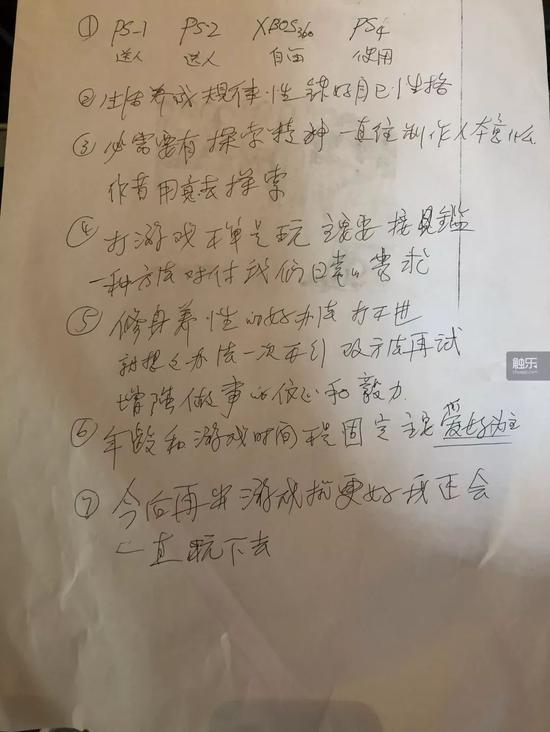 ① PS-1 PS-2 XBOS360 PS4
送人 送人 自留 使用
② 生活养成规律性 锻好自己性格
③ 必需要有探索精神一直往制作人本意什么
作者用意去探索
④ 打游戏不单是玩 主要要接見鑑
一种方法对付我们日常的需求
⑤ 修身养性的好办法 打不进
就想之办法一次不行改方法再试
增强做事的信心和毅力
⑥ 年龄和游戏时间不是固定主要爱好为主
⑦ 今后再出游戏机更好我还会
一直玩下去
触乐
chuapp.com